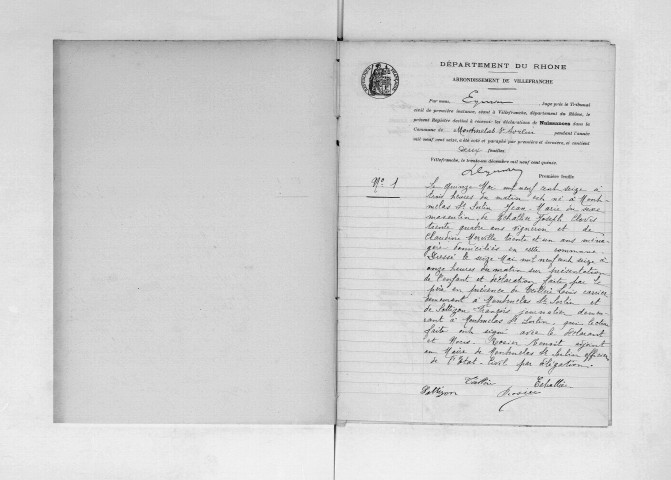 DÉPARTEMENT DU RHONE
ARRONDISSEMENT DE VILLEFRANCHE
Par nous Juge près le Tribunal
civil de première instance, séant à Villefranche, département du Rhône, le
présent Registre destiné à recevoir les déclarations de Naissances dans la
Commune de Montmelas St Sorlin pendant l'année
mil neuf cent seize, a été coté et paraphé par première et dernière, et contient
deux feuilles.
Villefranche, le trente-un décembre mil neuf cent quinze.
Première feuille
No 1
Le quinze Mai mil neuf cent seize à
heures du matin est né à Mont-
melas St Sorlin Jean Marie du sexe
masculin de Joseph Claudis
trente quatre ans vigneron et de
Claudine Merville trente et un ans ména-
gère domiciliés en cette commune
Dressé le seize Mai mil neuf cent seize à
onze heures du matin sur présentation
de l'enfant et déclaration faite par le
père en présence de Louis
demeurant à Montmelas St Sorlin et
de François journalier demeu-
rant à Montmelas St Sorlin, qui lecture
faite ont signé avec le déclarant
et Nous Rosier Benoit adjoint
au Maire de Montmelas St Sorlin officier
de l'Etat-Civil par délégation.